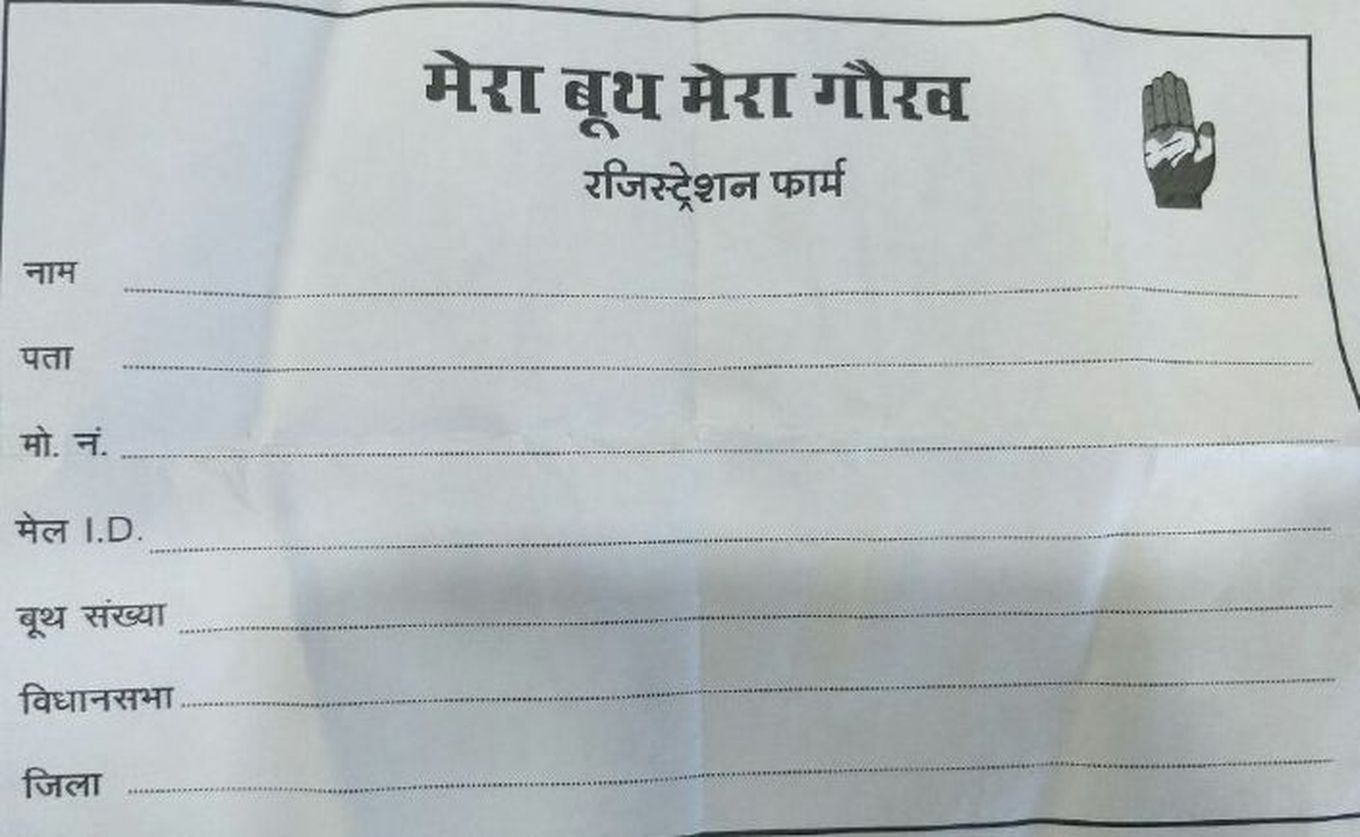 मेरा बूथ मेरा गौरव
रजिस्ट्रेशन फार्म
नाम
पता
मो. नं.
मेल I.D.
बूथ संख्या
विधानसभा
जिला